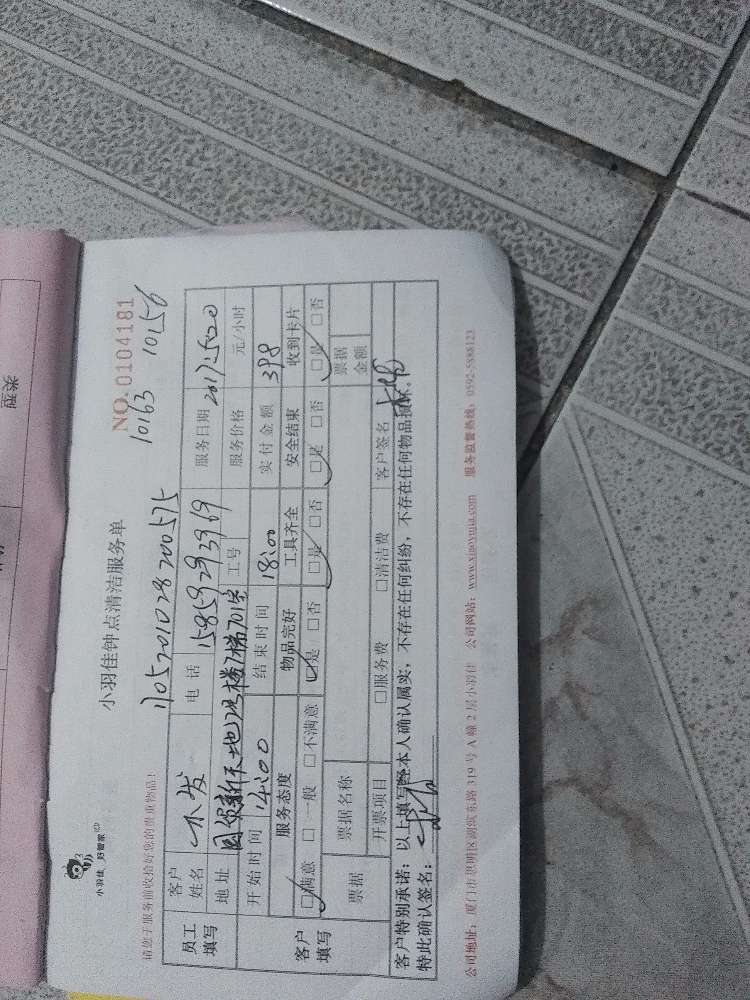 小羽佳 好管家
小羽佳钟点清洁服务单
NO. 0104181
请您于服务前收拾好您的贵重物品!
10163 10156
员工填写
客户姓名
电话 15859293969
服务日期
地址
7梯701室
工号
服务价格
元/小时
开始时间 14:00
结束时间 18:00
实付金额 398
客户填写
服务态度
物品完好
工具齐全
安全结束
收到卡片
□满意 □一般 □不满意
□是 □否
□是 □否
□是 □否
□是 □否
票据
票据名称
票据金额
开票项目
□服务费 □清洁费
客户签名
客户特别承诺:以上填写经本人确认属实,不存在任何纠纷,不存在任何物品损坏。
特此确认签名:
公司地址:厦门市思明区湖滨东路 319 号 A 幢 2 层小羽佳 公司网站:www.xiaoyujia.com 服务监督热线:0592-5888123
类型